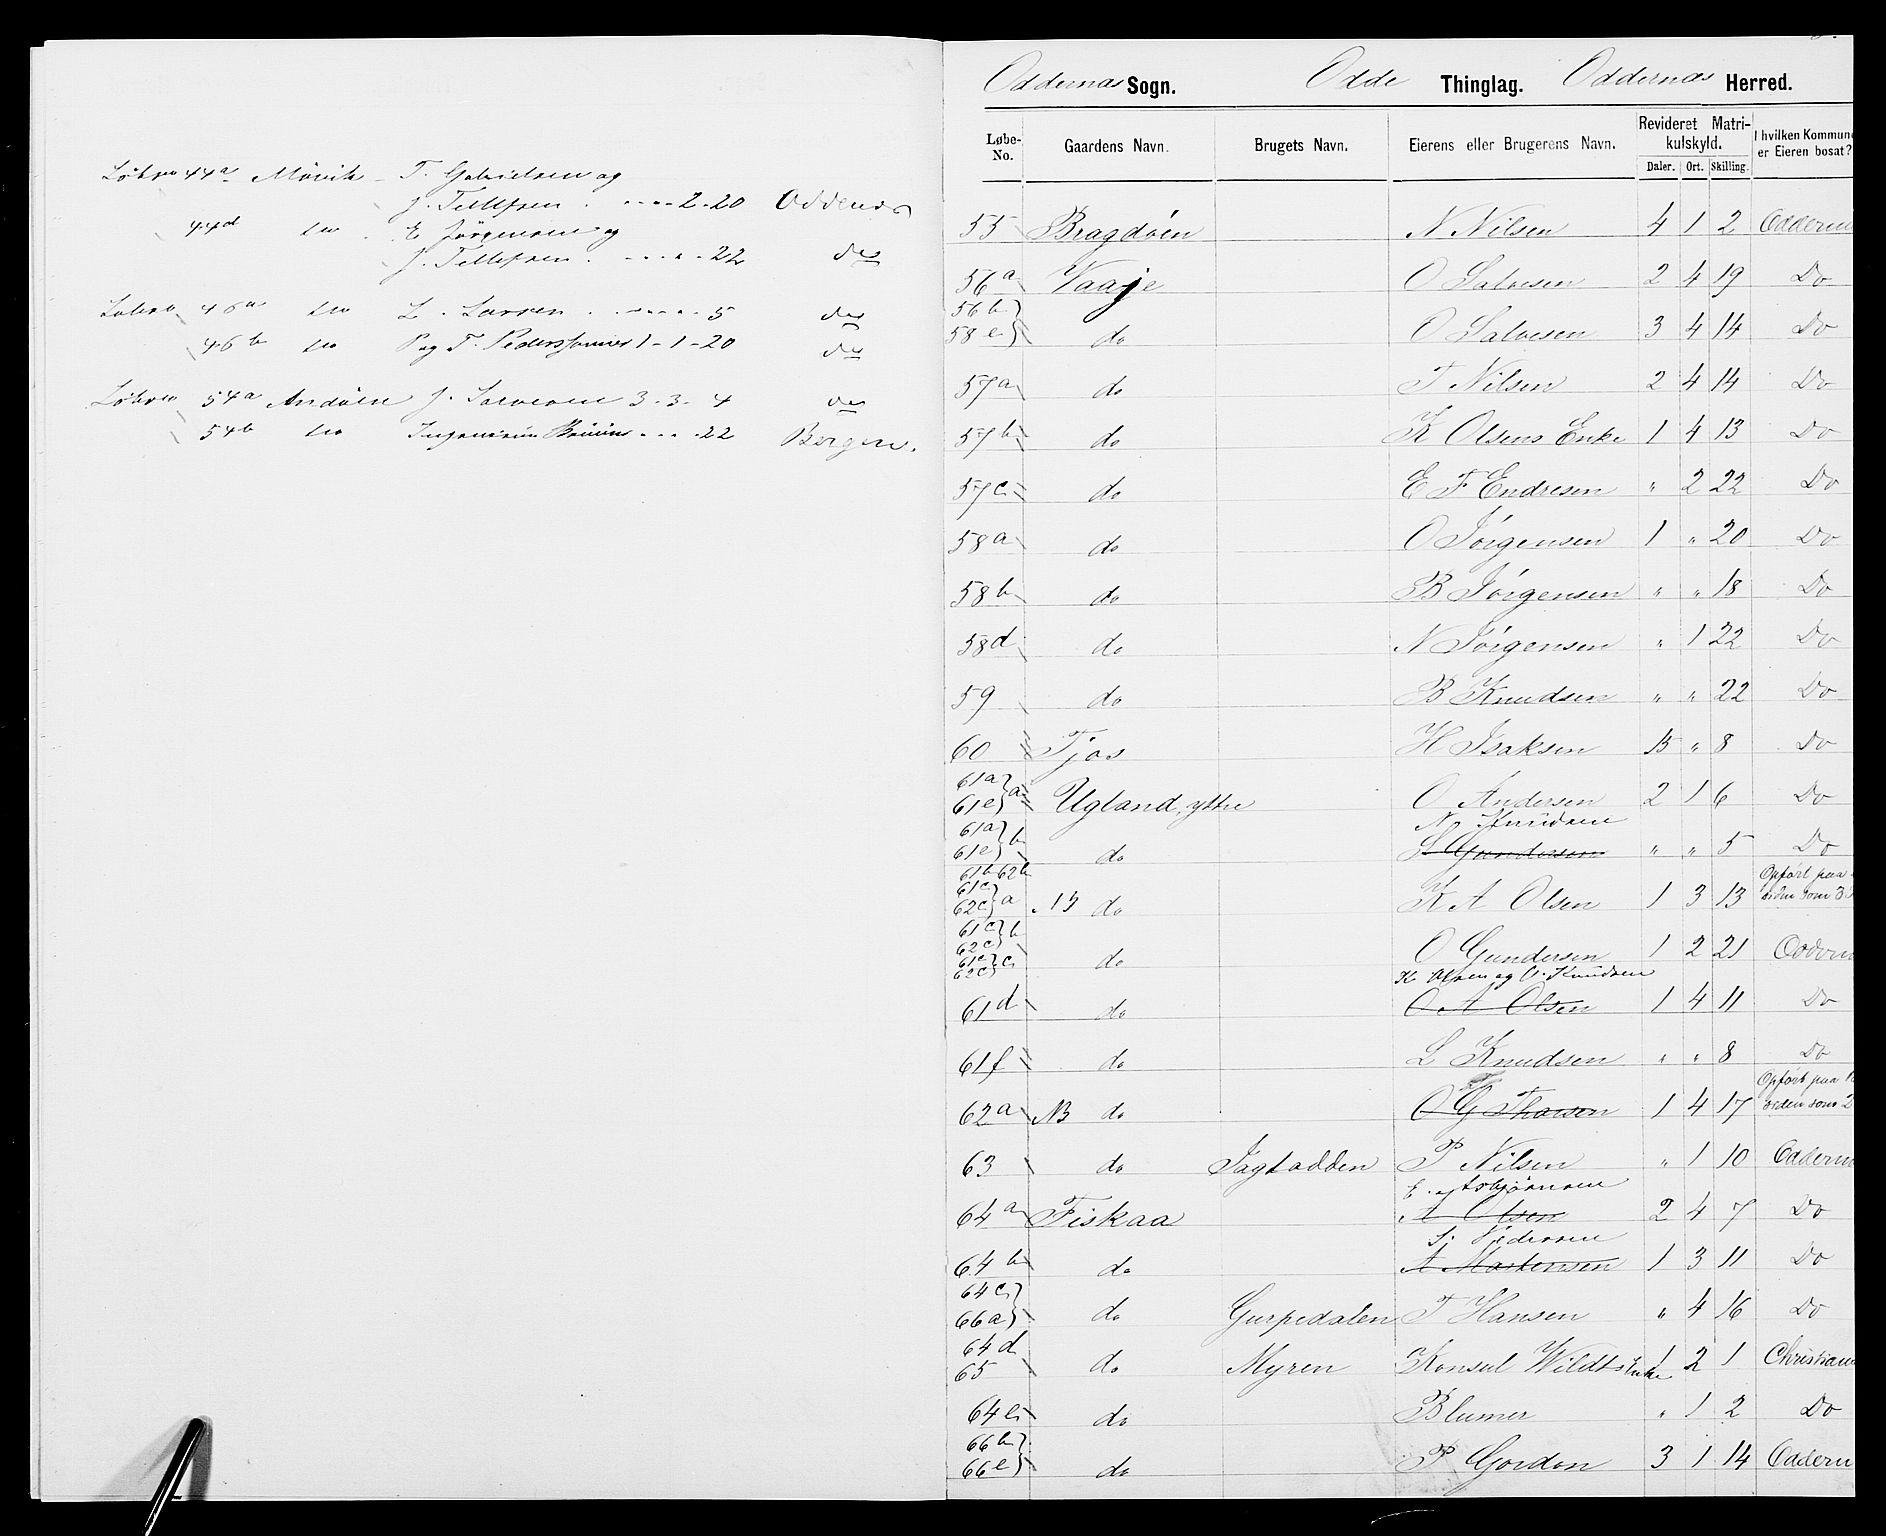 Löbno 44a Mövik - T. Gabrielsen og
J. Tellefsen . - - - - 2-20 Oddernæs
44d do . E. Jörgensen og
J. Tellefsen . - - - - 22 do
Löbno 46a do L. Larsen . - - - - 5 do
46b do P og T. Pederssønner 1-1-20 do
Löbno 54a Andöen J. Salvesen 3-3-4 do
54b do - - - 22 Bergen.
Oddernæs Sogn. Odde Thinglag. Oddernæs Herred.
Løbe-No. Gaardens Navn. Brugets Navn. Eierens eller Brugerens Navn. Revideret Matrikulskyld. I hvilken Kommune er Eieren bosat?
Daler. Ort. Skilling.
55 Bragdöen N Nilsen 4 1 2 Oddern
56a Vaaje O Salvesen 2 4 19 Do
56b
58e do O Salvesen 3 4 14 Do
57a do T Nilsen 2 4 14 Do
57b do K Olsens Enke 1 4 13 Do
57c do E F Endresen " 2 22 Do
58a do O Jörgensen 1 " 20 Do
58b do B Jörgensen " " 18 Do
58d do N Jörgensen " 1 22 Do
59 do B Knudsen " " 22 Do
60 Tjos H Isaksen " 8 Do
61a
61e a Ugland, yttre O Andersen 2 1 6 Do
N. Knudsen
61a
61e b do S Gundersen " " 5 Do
61b 62b
61c
62c a NB do K A Olsen 1 3 13 Opført paa siden som
61c
62c b do O Gundersen 1 2 21 Oddern
61c
62c c
K Olsen og O. Knudsen
61d do O A Olsen 1 4 11 Do
61f do L Knudsen " " 8 Do
62a NB do O G Thorsen 1 4 17 Opført paa siden som 2
63 do Jagtodden P Nilsen " 1 10 Oddern
E. Asbjörnsen
64a Fiskaa A Olsen 2 4 7 Do
S. Pedersen
64b do A Mortensen 1 3 11 Do
64c
66a do Gurpedalen T Hansen " 4 16 Do
64d
65 do Myren Konsul Wildts Enke 1 2 1 Christian
64e do Blumer " 1 2 Do
66b
66e do P Gordon 3 1 14 Oddern